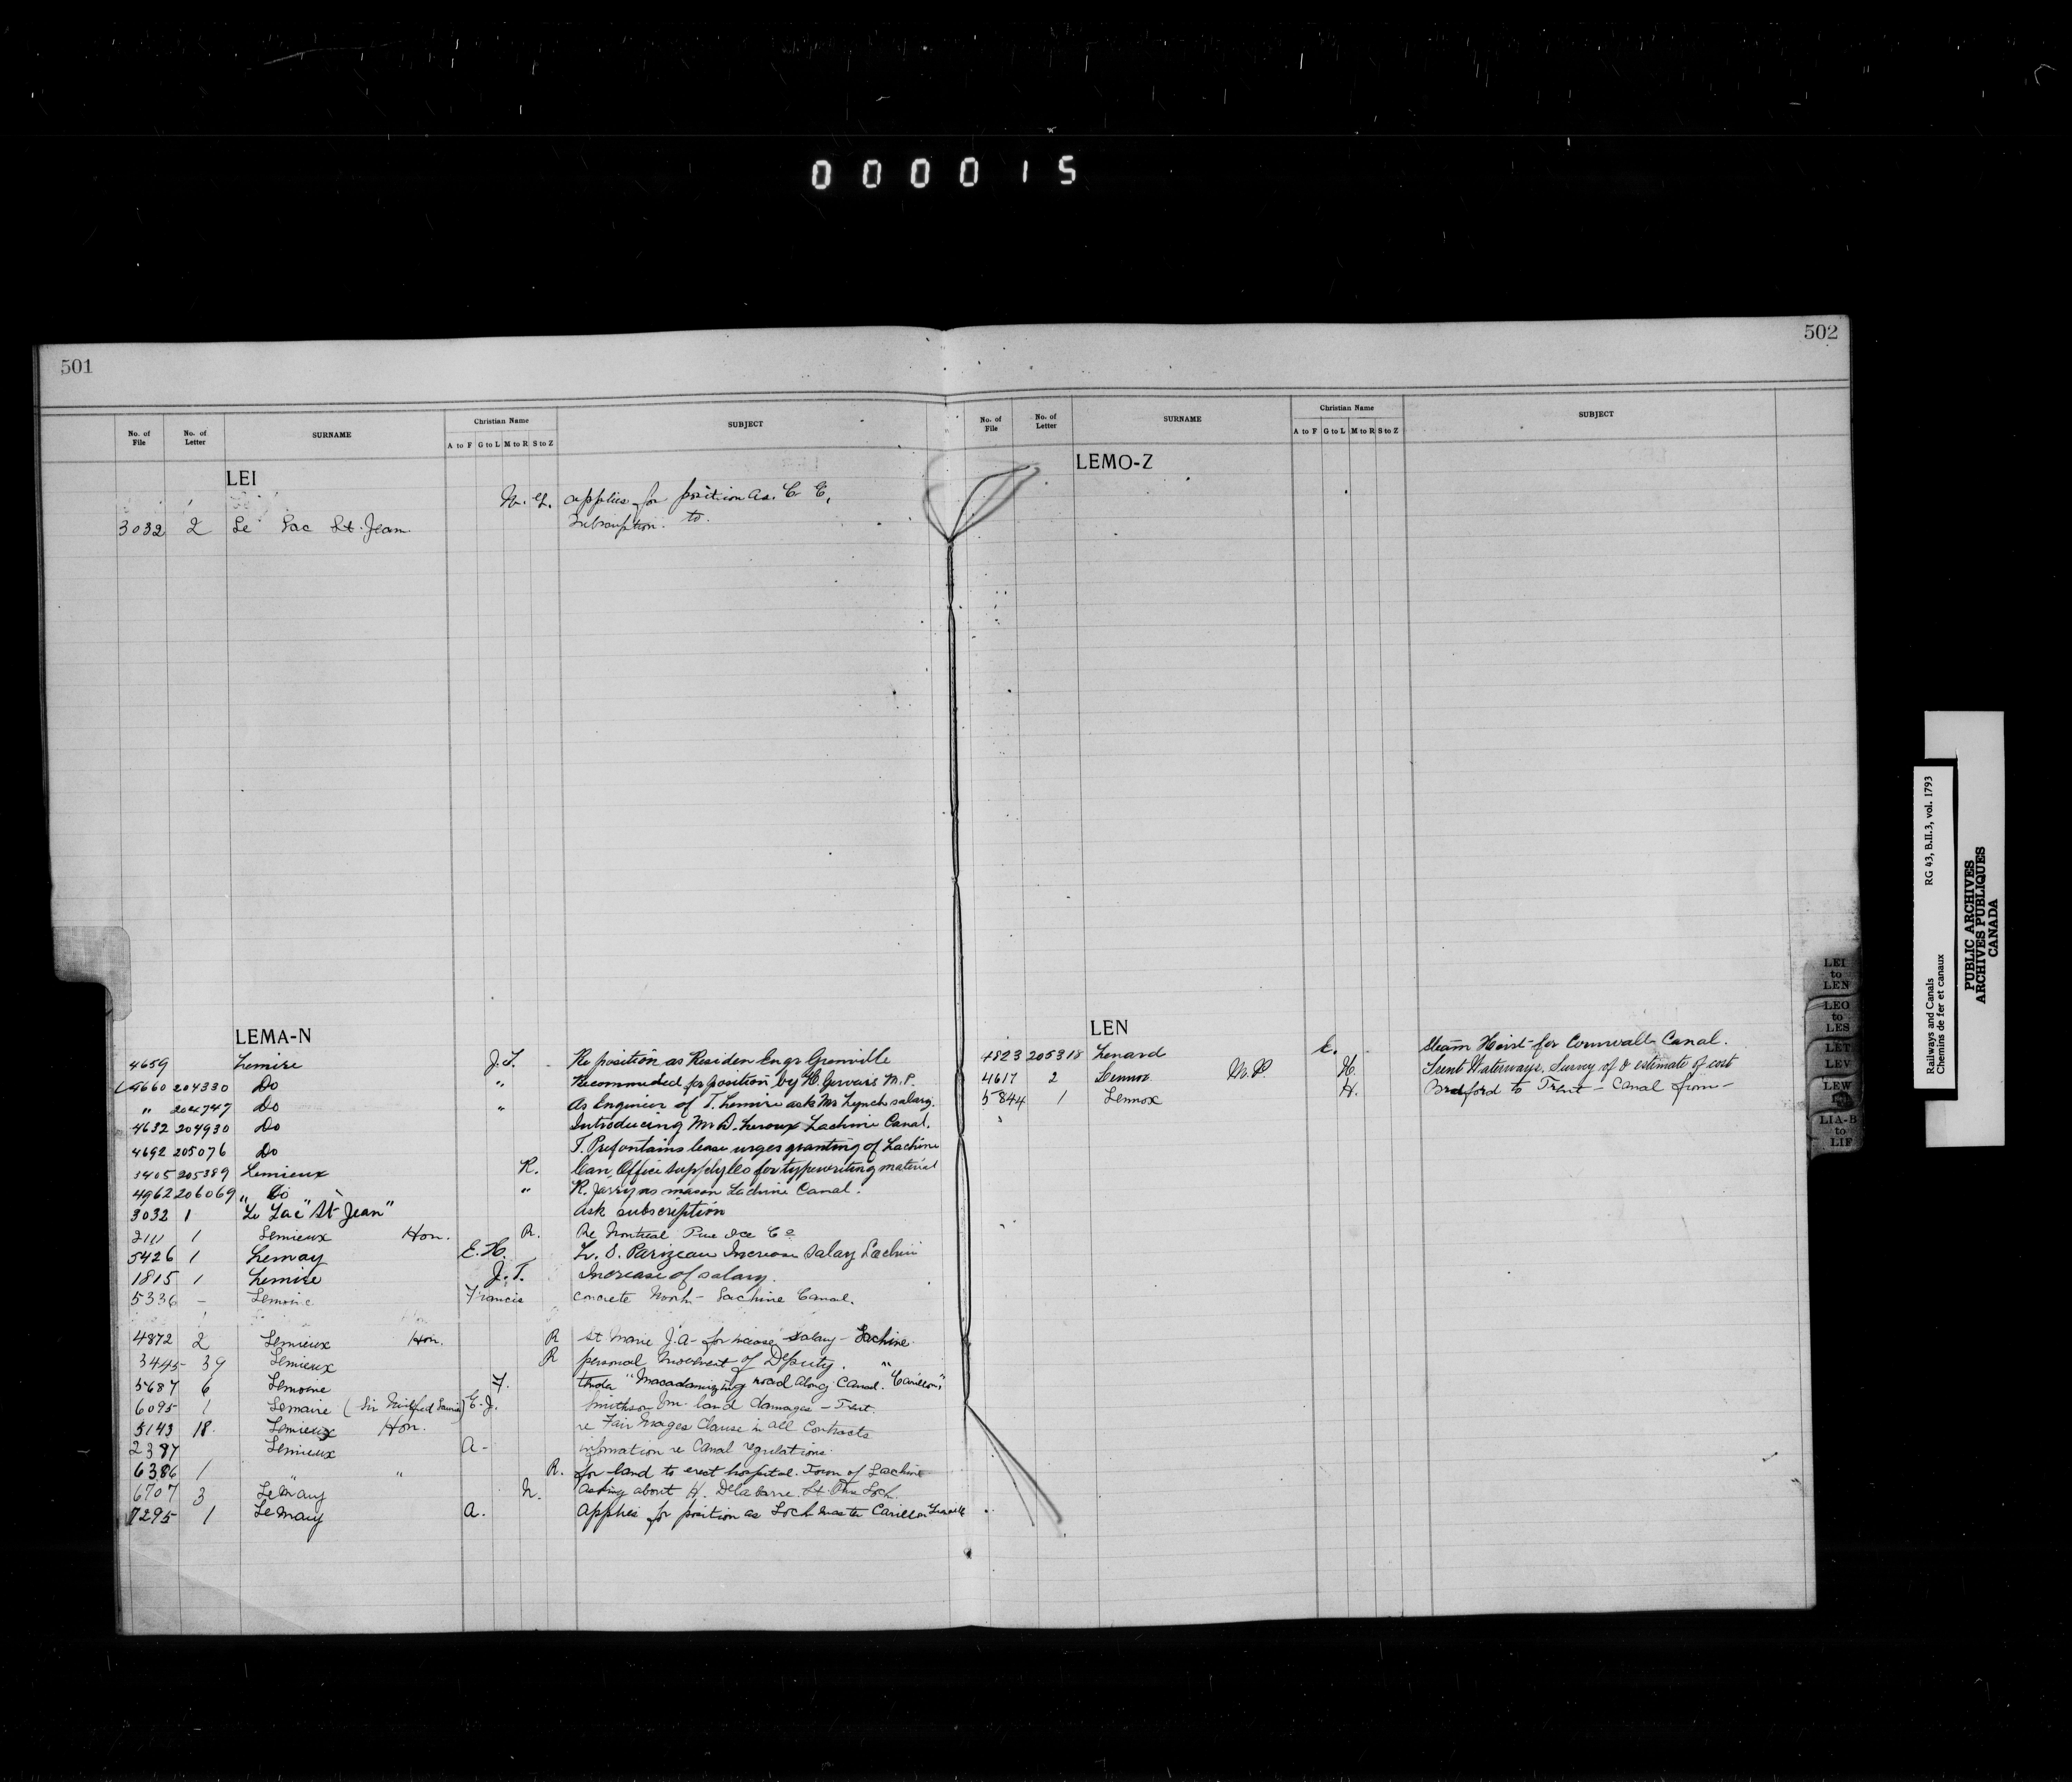 000015
501
No. of File No. of Letter SURNAME Christian Name A to F G to L M to R S to Z SUBJECT
LEI
applies for position as C E,
3032 2 Le Lac St. Jean Subscription to
LEMA-N
4659 Lemire J.T. Re position as Residen Engr Grenville
4660 204330 Do " Recommended for position by H. Gervais M.P.
" 204747 Do " As Engineer of T. Lemire ask Mr Lynch salary.
4632 204930 Do Introducing Mr D. Leroux Lachine Canal.
4692 205076 Do T. Prefontaine lease urges granting of Lachine
3405 205389 Lemieux R. Can. Office Supply Co for typewriting material
4962 206069 " Do " R. Jarry as mason Lachine Canal.
3032 1 Le Lac "St Jean" Ask subscription
2111 1 Lemieux Hon. R. Re Montreal Pure Ice Co
5426 1 Lemay E.H. L. O. Parizeau Increase Salary Lachin
1815 1 Lemire J.T. Increase of salary.
5336 - Lemoine Francis concrete Work - Lachine Canal.
4872 2 Lemieux Hon. R St Marie J.A - for increase salary - Lachine
3445 39 Lemieux R personal movement of Deputy.
5687 6 Lemoine F. tender "Macadamizing road along Canal. "Carillon"
6095 1 Lemaire (Sir Wilfred Laurier) E.J. Smithson Wm. land damages - Trent.
5143 18 Lemieux Hon. re Fair Wages Clause in all Contracts
2387 Lemieux A - information re Canal regulations.
6386 1 " " R. for land to erect hospital. Town of Lachine
6707 3 LeMay N. Asking about H. Delabarre
7295 1 LeMay A. Applies for position as Lock Master Carillon
502
No. of File No. of Letter SURNAME Christian Name A to F G to L M to R S to Z SUBJECT
LEMO-Z
LEN
4823 205318 Lenard E. Steam Hoist for Cornwall Canal.
4617 2 Lennox M.P. H. Trent Waterways, Survey of & estimate of cost
5844 1 Lennox H. Bradford to Trent - Canal from -
LEI to LEN
LEO to LES
LET
LEV
LEW
LIA-B to LIF
Railways and Canals RG 43, B.II.3, vol. 1793
Chemins de fer et canaux
PUBLIC ARCHIVES
ARCHIVES PUBLIQUES
CANADA